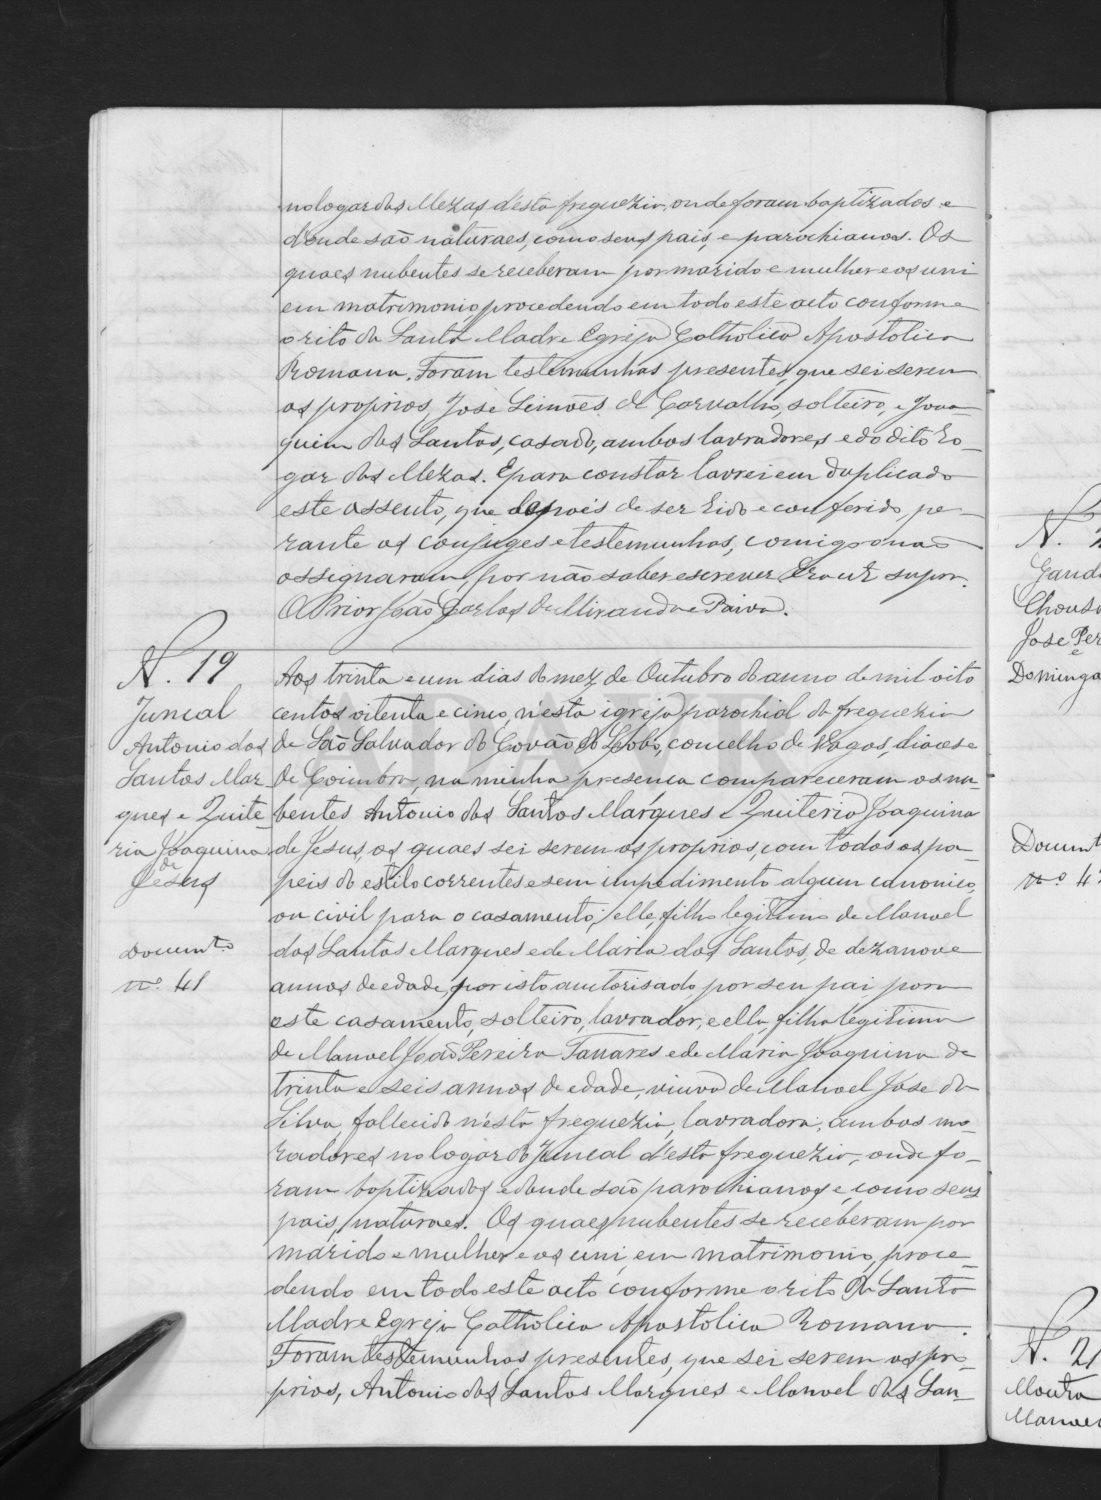 no logar das Mezas d'esta freguezia, onde foram baptizados e
d'onde são naturaes, como seus pais, e parochianos. Os
quaes nubentes se receberam por marido e mulher e os uni
em matrimonio, procedendo em todo este acto conforme
o rito da Santa Madre Egreja Catholica Apostolica
Romana. Foram testemunhas presentes, que sei serem
os proprios, José Simões de Carvalho, solteiro, e Joa-
quim dos Santos, casado, ambos lavradores e do dito lo-
gar das Mezas. E para constar lavrei em duplicado
este assento, que depois de ser lido e conferido, pe-
rante os conjuges e testemunhas, comigo o não
assignaram, por não saber escrever. Era ut supra.
O Prior João Carlos de Miranda e Paiva.
N. 19
Juncal
Antonio dos
Santos Mar-
ques e Quite-
ria Joaquina
de
Jesus
Documto
nº 41
Aos trinta e um dias do mez de Outubro do anno de mil oito
centos oitenta e cinco, n'esta igreja parochial da freguezia
de São Salvador do Covão do Lobo, concelho de Vagos, diocese
de Coimbra, na minha presença compareceram os nu-
bentes Antonio dos Santos Marques e Quiteria Joaquina
de Jesus, os quaes sei serem os proprios, com todos os pa-
peis do estilo correntes e sem impedimento algum canonico,
ou civil para o casamento; elle, filho legitimo de Manoel
dos Santos Marques e de Maria dos Santos, de dezanove
annos de edade, por isto auctorisado por seu pai para
este casamento, solteiro, lavrador, e ella, filha legitima
de Manoel João Pereira Tavares e de Maria Joaquina de
trinta e seis annos de edade, viuva de Manoel José da
Silva, fallecido n'esta freguezia, lavradora, ambos mo-
radores no logar do Juncal d'esta freguezia, onde fo-
ram baptizados e donde são parochianos e, como seus
pais, naturaes. Os quaes nubentes se receberam por
marido e mulher e os uni em matrimonio, proce-
dendo em todo este acto conforme o rito da Santa
Madre Egreja Catholica Apostolica Romana.
Foram testemunhas presentes, que sei serem os pro-
prios, Antonio dos Santos Marques e Manoel dos San-
N.
Chous
José Per
e
Dominga
Documt
nº 4
N. 21
Moutra
Manoel